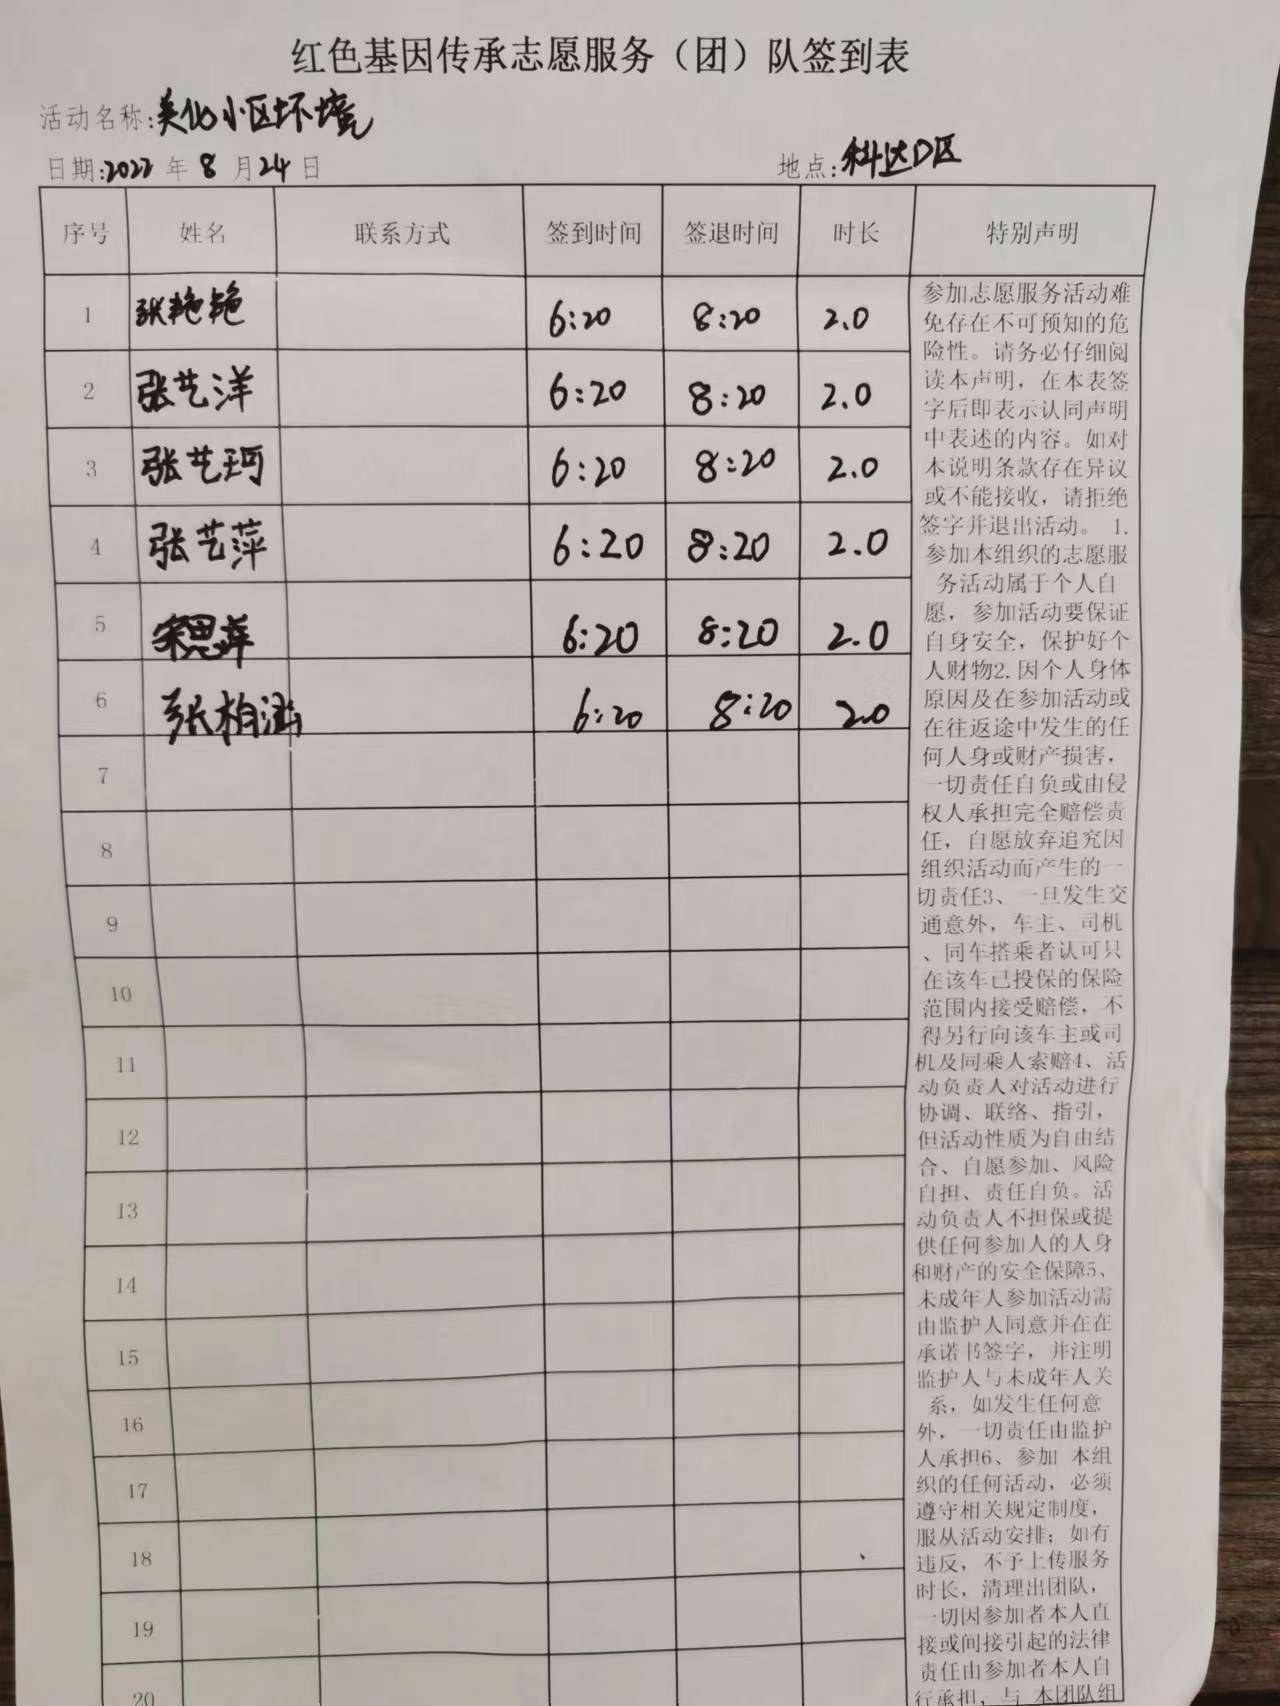 红色基因传承志愿服务（团）队签到表
活动名称:美化小区环境
日期:2022年8月24日 地点:科达D区
序号 姓名 联系方式 签到时间 签退时间 时长 特别声明
1 张艳艳 6:20 8:20 2.0
2 张艺洋 6:20 8:20 2.0
3 张艺珂 6:20 8:20 2.0
4 张艺萍 6:20 8:20 2.0
5 宋思萍 6:20 8:20 2.0
6 张柏 6:20 8:20 2.0
7
8
9
10
11
12
13
14
15
16
17
18
19
20
参加志愿服务活动难
免存在不可预知的危
险性。请务必仔细阅
读本声明，在本表签
字后即表示认同声明
中表述的内容。如对
本说明条款存在异议
或不能接收，请拒绝
签字并退出活动。 1.
参加本组织的志愿服
务活动属于个人自
愿，参加活动要保证
自身安全，保护好个
人财物2.因个人身体
原因及在参加活动或
在往返途中发生的任
何人身或财产损害，
一切责任自负或由侵
权人承担完全赔偿责
任，自愿放弃追究因
组织活动而产生的一
切责任3、一旦发生交
通意外，车主、司机
、同车搭乘者认可只
在该车已投保的保险
范围内接受赔偿，不
得另行向该车主或司
机及同乘人索赔4、活
动负责人对活动进行
协调、联络、指引，
但活动性质为自由结
合、自愿参加、风险
自担、责任自负。活
动负责人不担保或提
供任何参加人的人身
和财产的安全保障5、
未成年人参加活动需
由监护人同意并在在
承诺书签字，并注明
监护人与未成年人关
系，如发生任何意
外，一切责任由监护
人承担6、参加 本组
织的任何活动，必须
遵守相关规定制度，
服从活动安排；如有
违反，不予上传服务
时长，清理出团队，
一切因参加者本人直
接或间接引起的法律
责任由参加者本人自
行承担，与 本团队组